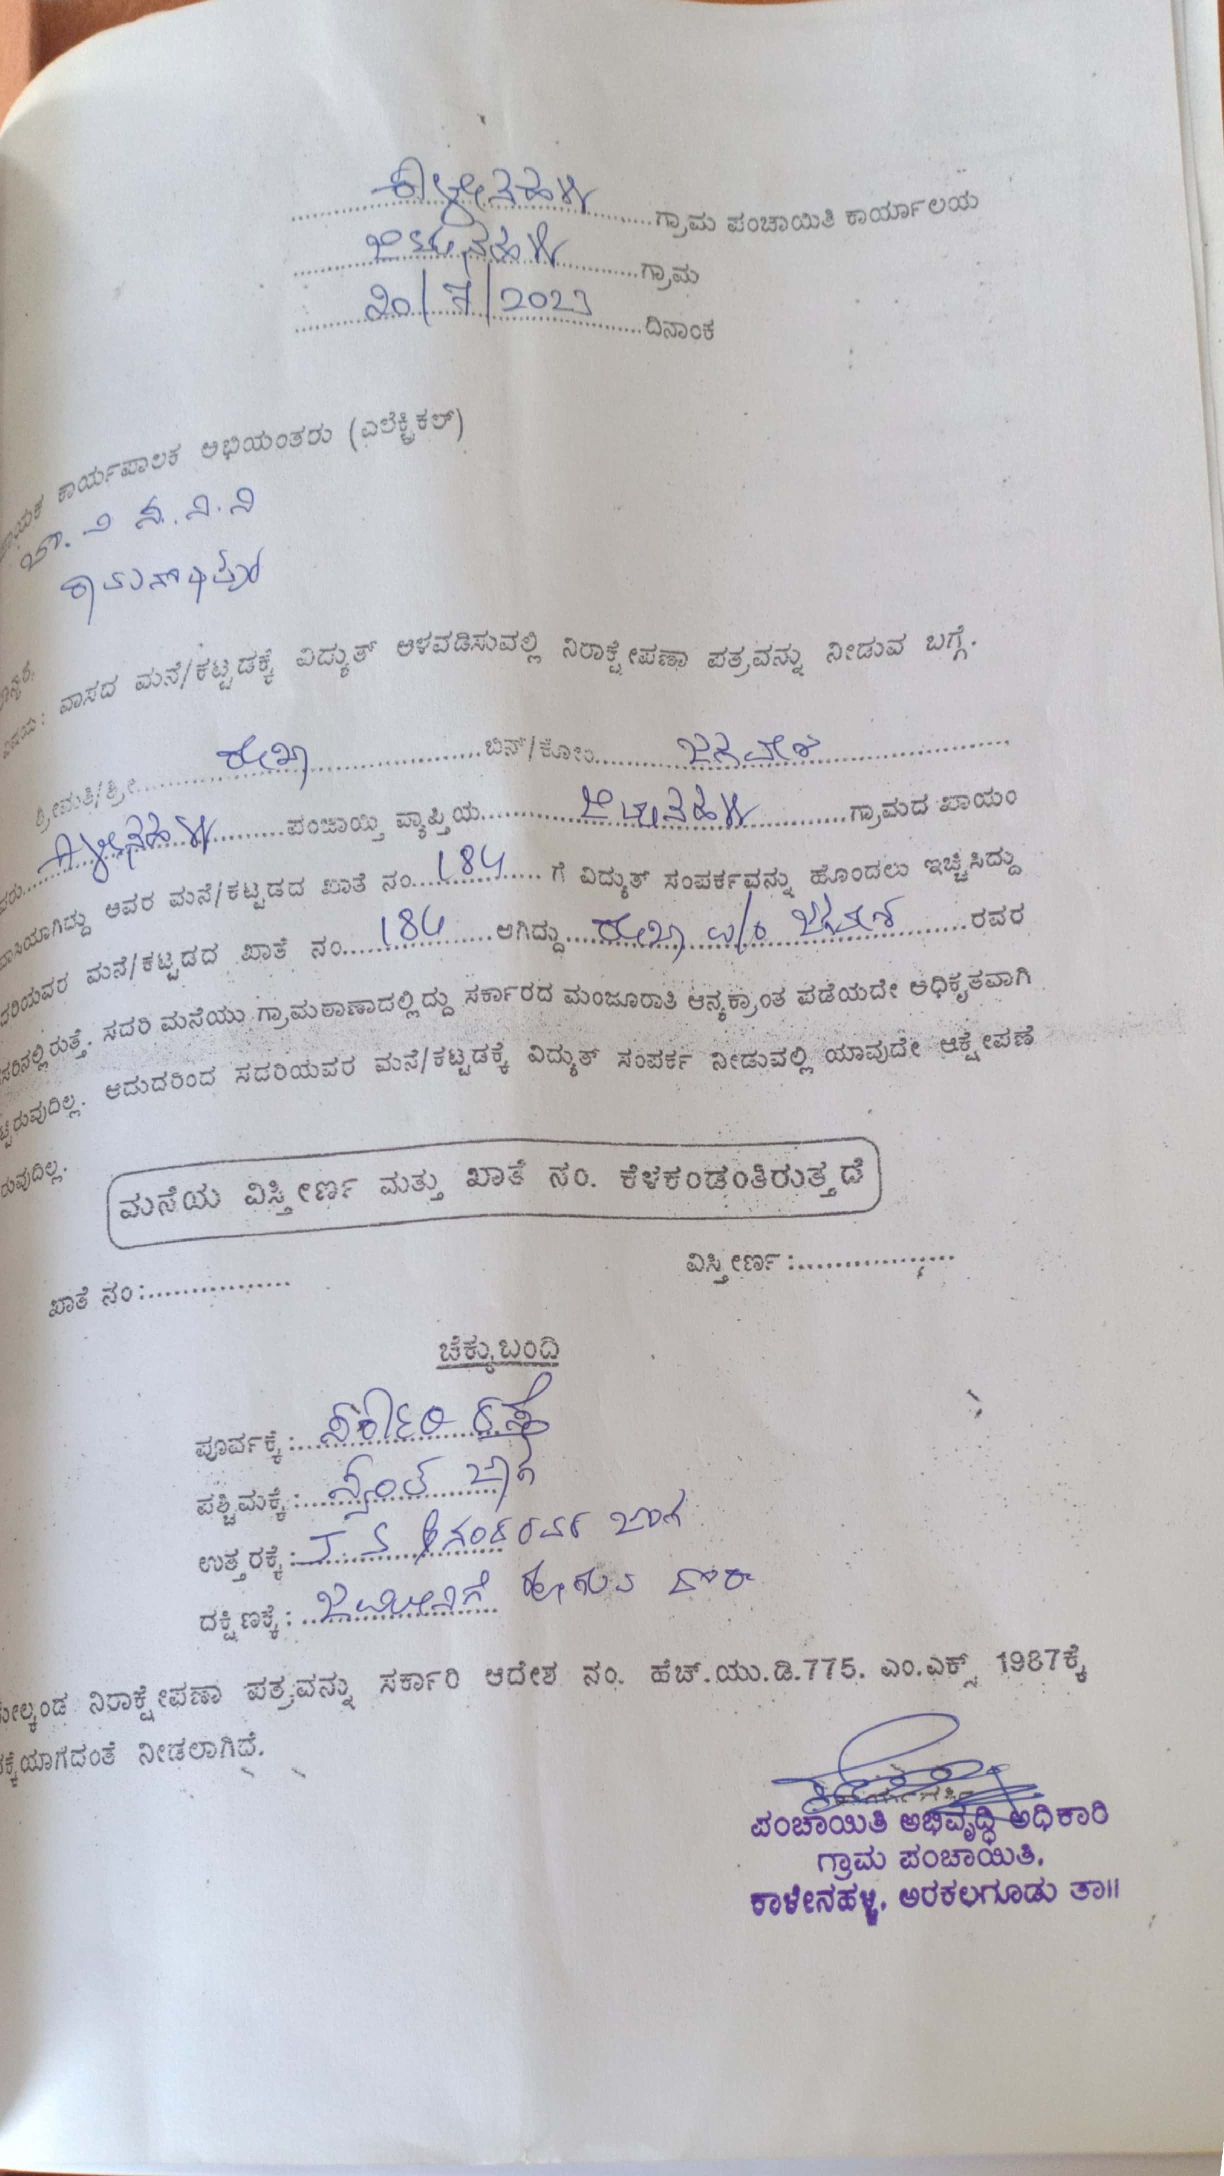 ಕಾಳೇನಹಳ್ಳಿ ಗ್ರಾಮ ಪಂಚಾಯಿತಿ ಕಾರ್ಯಾಲಯ
ಗ್ರಾಮ
20/7/2023 ದಿನಾಂಕ
ಕಾರ್ಯಪಾಲಕ ಅಭಿಯಂತರು (ಎಲೆಕ್ಟ್ರಿಕಲ್)
ಚಾ. ವಿ ಸ. ನಿ. ನಿ
ರಾಮನಾಥಪುರ
ವಿಷಯ: ವಾಸದ ಮನೆ/ಕಟ್ಟಡಕ್ಕೆ ವಿದ್ಯುತ್ ಅಳವಡಿಸುವಲ್ಲಿ ನಿರಾಕ್ಷೇಪಣಾ ಪತ್ರವನ್ನು ನೀಡುವ ಬಗ್ಗೆ.
ಶ್ರೀಮತಿ/ಶ್ರೀ ರೇಖಾ ಬಿನ್/ಕೋಂ
ಕಾಳೇನಹಳ್ಳಿ ಪಂಚಾಯ್ತಿ ವ್ಯಾಪ್ತಿಯ ಗ್ರಾಮದ ಖಾಯಂ
ವಾಸಿಯಾಗಿದ್ದು ಅವರ ಮನೆ/ಕಟ್ಟಡದ ಖಾತೆ ನಂ 184 ಗೆ ವಿದ್ಯುತ್ ಸಂಪರ್ಕವನ್ನು ಹೊಂದಲು ಇಚ್ಚಿಸಿದ್ದು
ದರಿಯವರ ಮನೆ/ಕಟ್ಟಡದ ಖಾತೆ ನಂ 184 ಆಗಿದ್ದು ರೇಖಾ ರವರ
ಸರಿನಲ್ಲಿರುತ್ತೆ. ಸದರಿ ಮನೆಯು ಗ್ರಾಮಠಾಣಾದಲ್ಲಿದ್ದು ಸರ್ಕಾರದ ಮಂಜೂರಾತಿ ಆನ್ಯಕ್ರಾಂತ ಪಡೆಯದೇ ಅಧಿಕೃತವಾಗಿ
ಟ್ಟಿರುವುದಿಲ್ಲ. ಆದುದರಿಂದ ಸದರಿಯವರ ಮನೆ/ಕಟ್ಟಡಕ್ಕೆ ವಿದ್ಯುತ್ ಸಂಪರ್ಕ ನೀಡುವಲ್ಲಿ ಯಾವುದೇ ಆಕ್ಷೇಪಣೆ
ರುವುದಿಲ್ಲ.
ಮನೆಯ ವಿಸ್ತೀರ್ಣ ಮತ್ತು ಖಾತೆ ನಂ. ಕೆಳಕಂಡಂತಿರುತ್ತದೆ
ಖಾತೆ ನಂ: ವಿಸ್ತೀರ್ಣ :
ಚೆಕ್ಕುಬಂದಿ
ಪೂರ್ವಕ್ಕೆ : ಸರ್ಕಾರಿ ರಸ್ತೆ
ಪಶ್ಚಿಮಕ್ಕೆ : ಸ್ವಂತ ಜಾಗ
ಉತ್ತರಕ್ಕೆ : ಜಾಗ
ದಕ್ಷಿಣಕ್ಕೆ : ಜಮೀನಿಗೆ ಹೋಗುವ ದಾರಿ
ಮೇಲ್ಕಂಡ ನಿರಾಕ್ಷೇಪಣಾ ಪತ್ರವನ್ನು ಸರ್ಕಾರಿ ಆದೇಶ ನಂ. ಹೆಚ್.ಯು.ಡಿ.775. ಎಂ.ಎಕ್ಸ್ 1987ಕ್ಕೆ
ಕ್ಕೆಯಾಗದಂತೆ ನೀಡಲಾಗಿದೆ.
ಪಂಚಾಯಿತಿ ಅಭಿವೃದ್ಧಿ ಅಧಿಕಾರಿ
ಗ್ರಾಮ ಪಂಚಾಯಿತಿ,
ಕಾಳೇನಹಳ್ಳಿ, ಅರಕಲಗೂಡು ತಾ॥